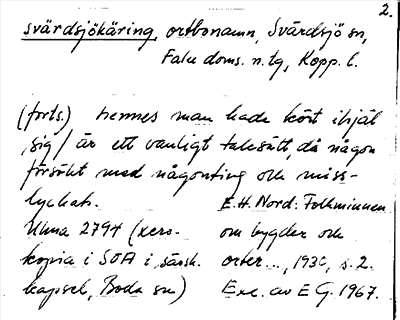 2.
svärdsjökäring, ortbonamn, Svärdsjö sn,
Falu doms. n. tg, Kopp. l.
(forts.) hennes man hade kört ihjäl
sig / är ett vanligt talesätt, då någon
försökt med någonting och miss-
lyckats. E.H. Nord: Folkminnen
Ulma 2794 (xero- om bygder och
kopia i SOA i särsk. orter..., 1930, s. 2.
kapsel, Boda sn) Exc. av E G. 1967.